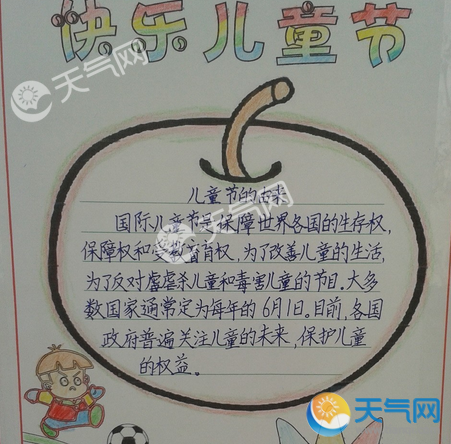 快乐儿童节
天气网
儿童节的由来
国际儿童节是保障世界各国的生存权,
保障权和受教育权,为了改善儿童的生活,
为了反对虐杀儿童和毒害儿童的节日。大多
数国家通常定为每年的6月1日。目前,各国
政府普遍关注儿童的未来,保护儿童
的权益。
天气网
天气网